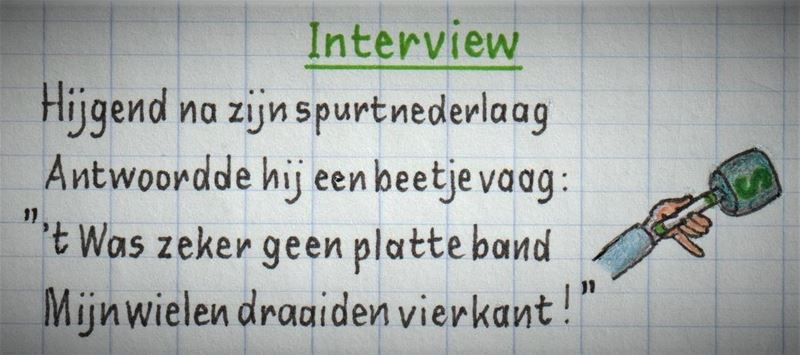 Interview
Hijgend na zijn spurtnederlaag
Antwoordde hij een beetje vaag:
"'t Was zeker geen platte band
Mijn wielen draaiden vierkant!"
S